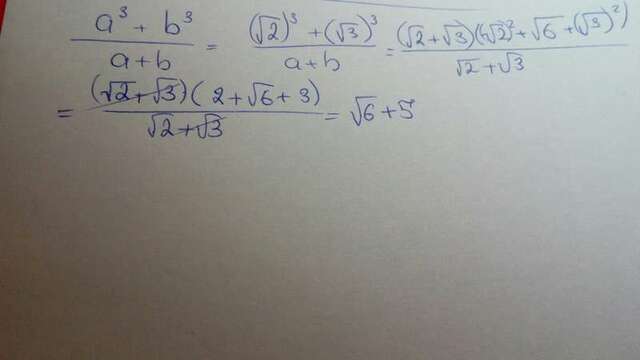 a³ + b³ / a + b = (√2)³ + (√3)³ / a + b = (√2 + √3)((√2)² + √6 + (√3)²) / √2 + √3
= (√2 + √3)(2 + √6 + 3) / √2 + √3 = √6 + 5